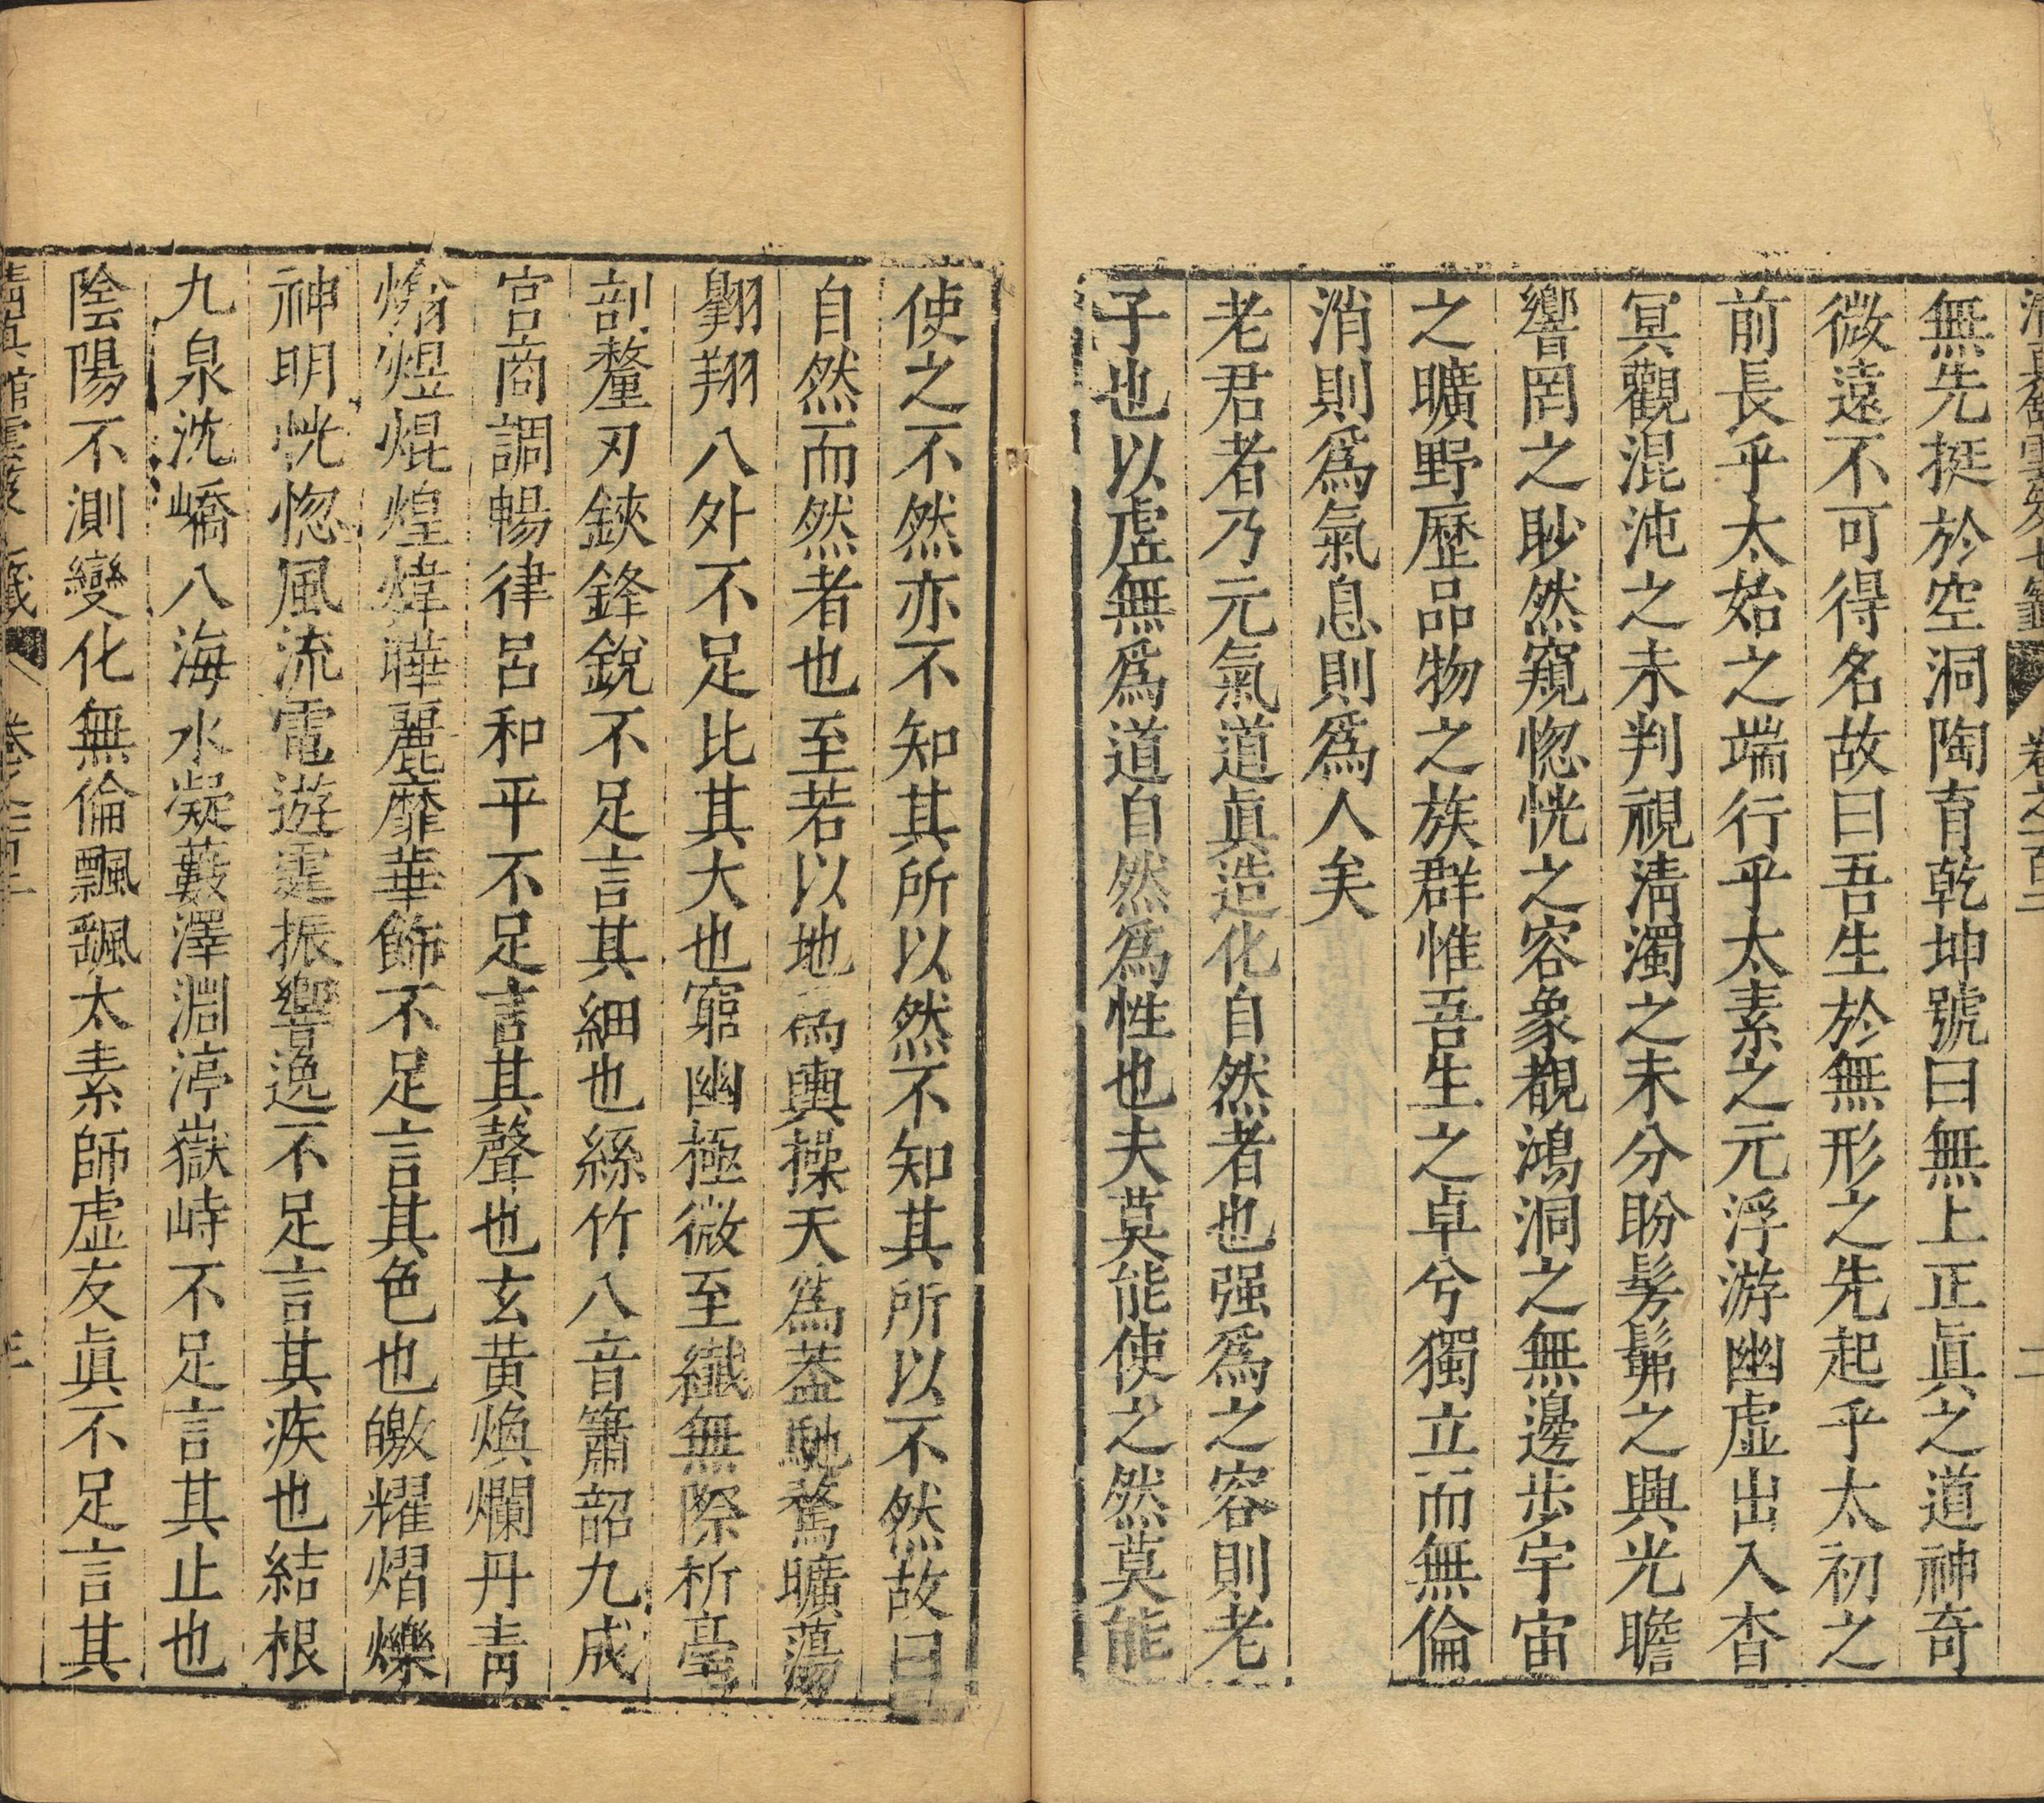 清眞館雲笈七籤 卷之一百二 二
無先挺於空洞陶育乾坤號曰無上正眞之道神奇
微遠不可得名故曰吾生於無形之先起乎太初之
前長乎太始之端行乎太素之元浮游幽虛出入杳
冥觀混沌之未判視淸濁之未分盼髣髴之興光瞻
響罔之眇然窺惚恍之容象覩鴻洞之無邊步宇宙
之曠野歷品物之族群惟吾生之卓兮獨立而無倫
消則爲氣息則爲人矣
老君者乃元氣道眞造化自然者也强爲之容則老
子也以虛無爲道自然爲性也夫莫能使之然莫能
使之不然亦不知其所以然不知其所以不然故曰
自然而然者也至若以地爲輿操天爲蓋馳騖曠蕩
翺翔八外不足比其大也窮幽極微至纖無際析毫
剖釐刃鋏鋒銳不足言其細也絲竹八音簫韶九成
宮商調暢律呂和平不足言其聲也玄黃煥爛丹靑
煥煜焜煌煒曄麗靡華飾不足言其色也皦耀熠爍
神明恍惚風流電遊霆振響逸不足言其疾也結根
九泉沈嶠八海水凝藪澤淵渟嶽峙不足言其止也
陰陽不測變化無倫飄飖太素師虛友眞不足言其
淸眞館雲笈七籤 卷之一百二 三